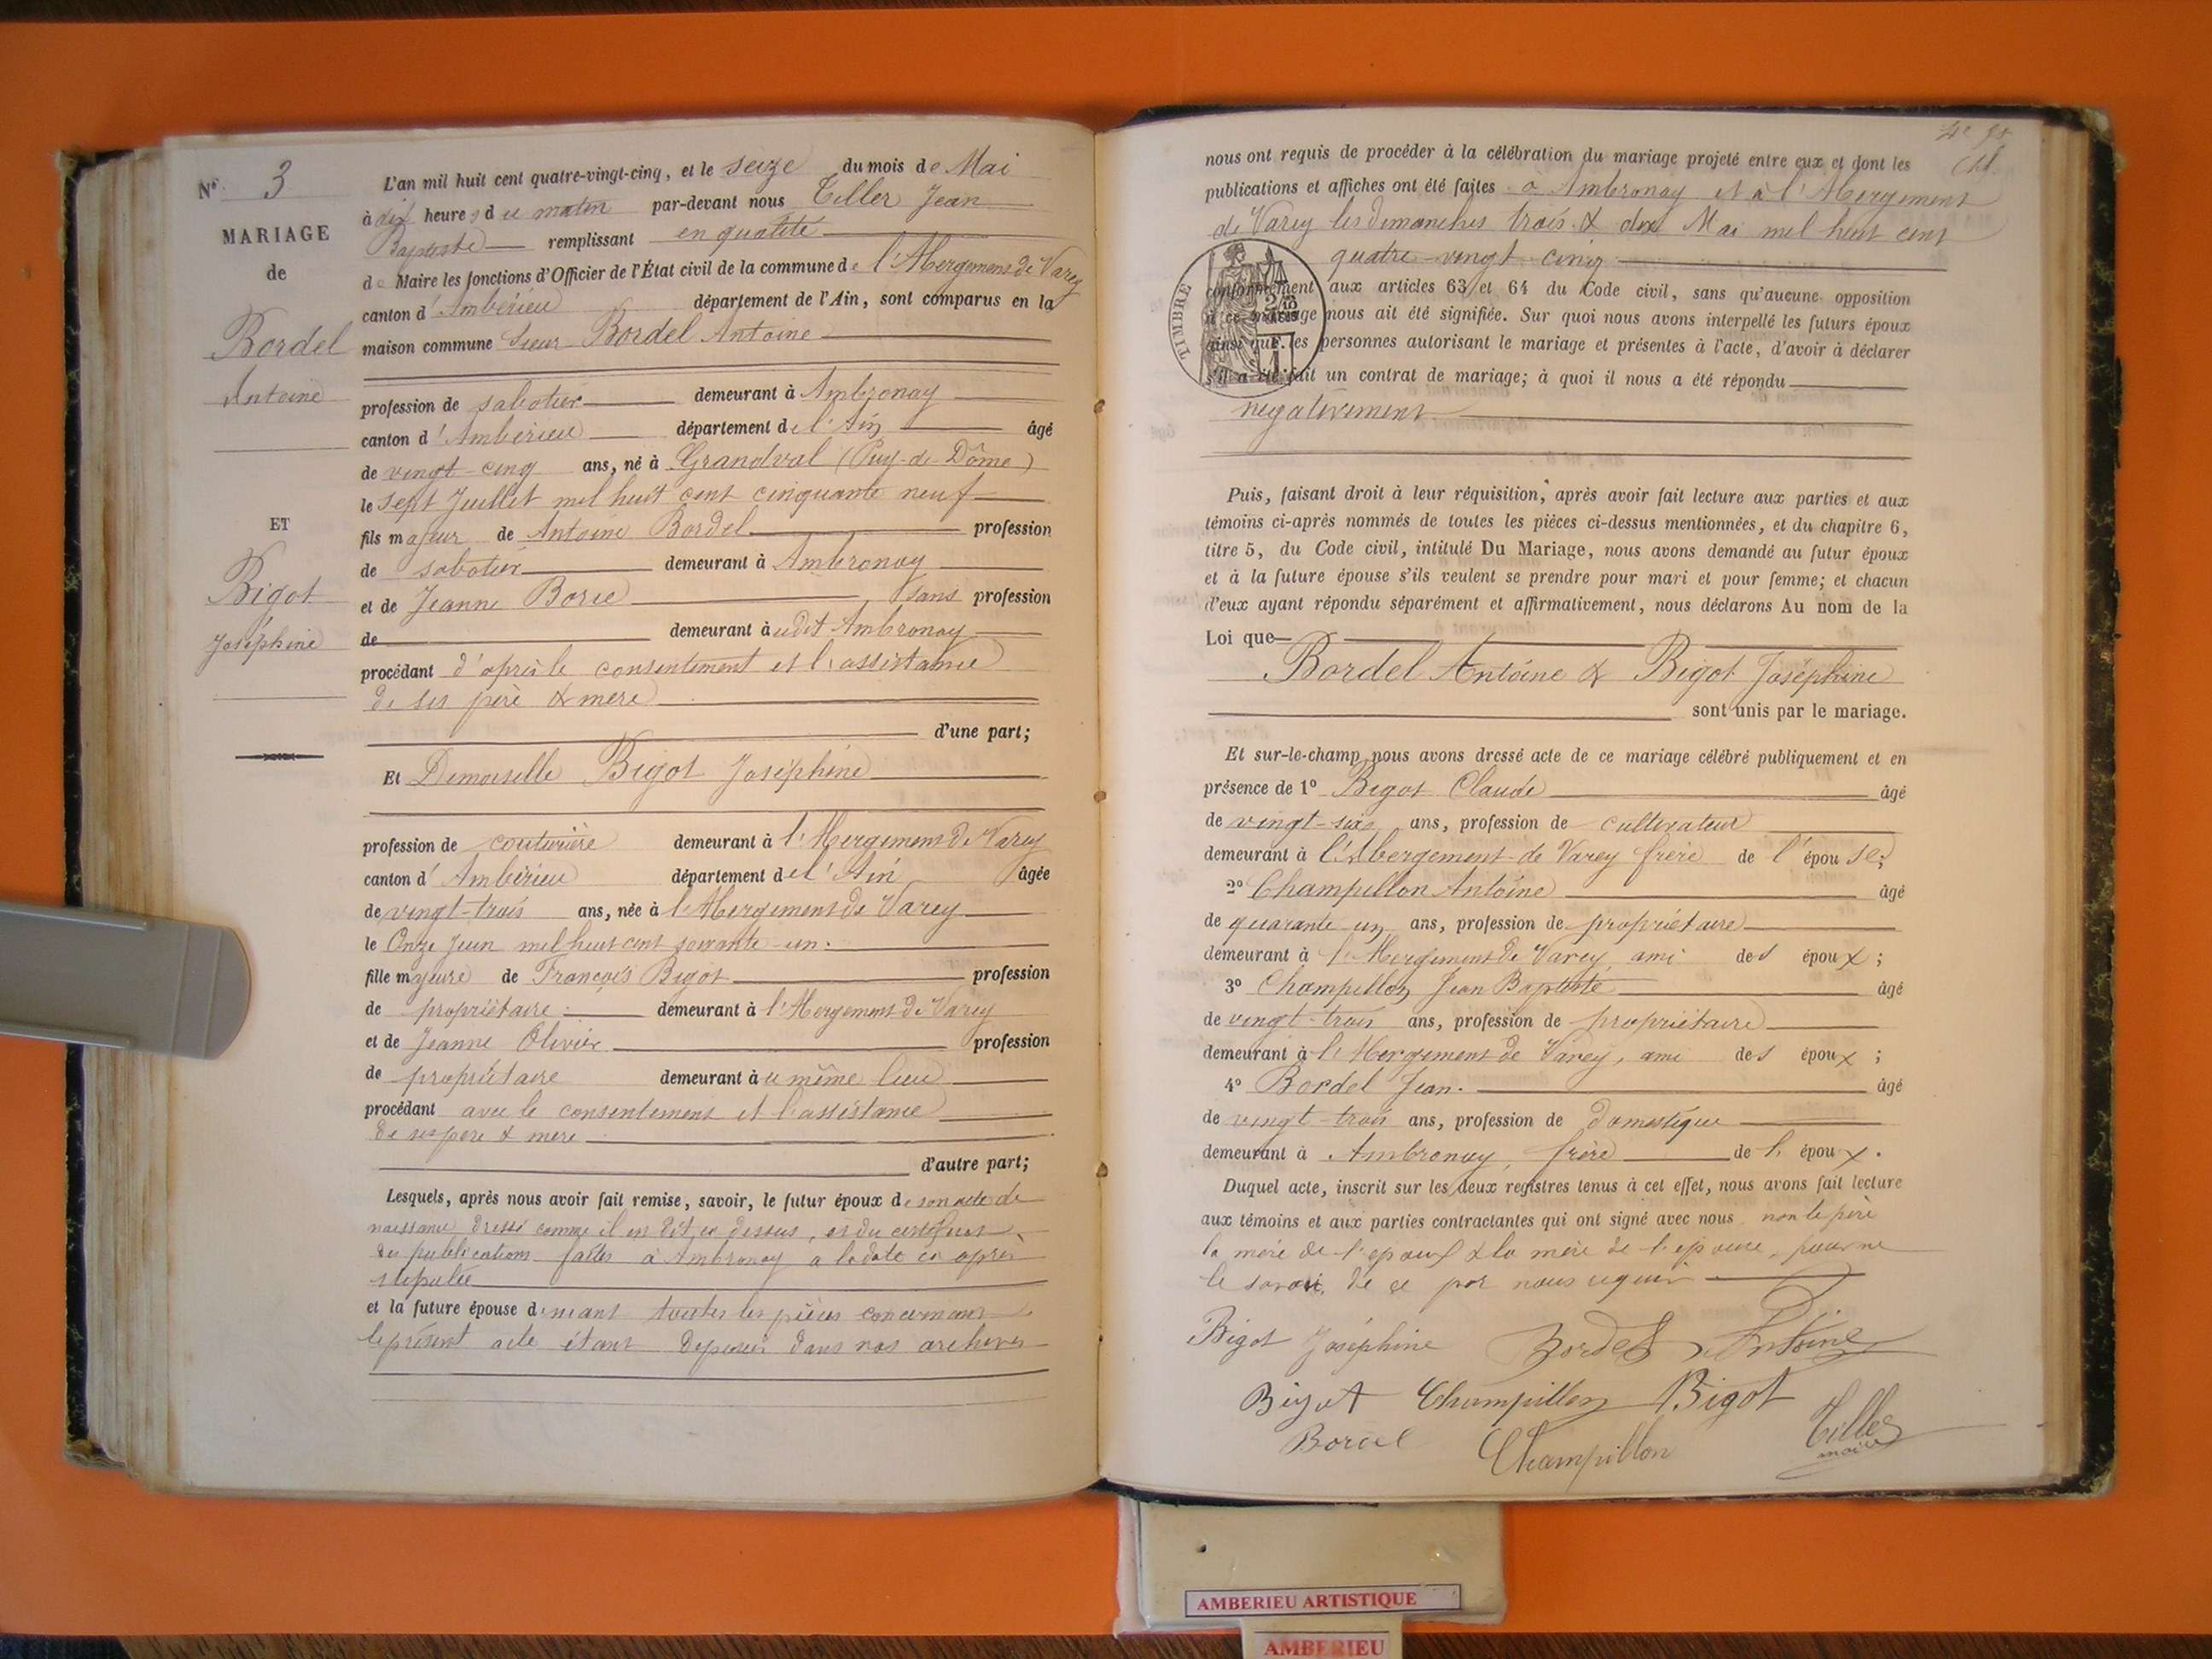 N° 3
MARIAGE
de
Bordel
Antoine
ET
Bigot
Joséphine
L'an mil huit cent quatre-vingt-cinq, et le seize du mois de Mai
à dix heures du matin par-devant nous Tiller Jean
Baptiste remplissant en qualité
de Maire les fonctions d'Officier de l'État civil de la commune de l'Abergement de Varey
canton d'Ambérieu département de l'Ain, sont comparus en la
maison commune Sieur Bordel Antoine
profession de sabotier demeurant à Ambronay
canton d'Ambérieu département de l'Ain âgé
de vingt-cinq ans, né à Grandval (Puy-de-Dôme)
le sept Juillet mil huit cent cinquante neuf
fils majeur de Antoine Bordel profession
de sabotier demeurant à Ambronay
et de Jeanne Borie sans profession
de demeurant à udit Ambronay
procédant d'après le consentement et l'assistance
de ses père & mère
d'une part;
Et Demoiselle Bigot Joséphine
profession de couturière demeurant à l'Abergement de Varey
canton d'Ambérieu département de l'Ain âgée
de vingt-trois ans, née à l'Abergement de Varey
le Onze Juin mil huit cent soixante-un.
fille majeure de François Bigot profession
de propriétaire demeurant à l'Abergement de Varey
et de Jeanne Olivier profession
de propriétaire demeurant à u même lieu
procédant avec le consentement et l'assistance
de ses père & mère
d'autre part;
Lesquels, après nous avoir fait remise, savoir, le futur époux de son acte de
naissance dressé comme il en est ci dessus, et du certificat
des publications faites à Ambronay a la date ci après
stipulée
et la future épouse d toutes les pièces concernant
le présent acte étant déposées dans nos archives
nous ont requis de procéder à la célébration du mariage projeté entre eux et dont les
publications et affiches ont été faites à Ambronay et à l'Abergement
de Varey les dimanches trois & dix Mai mil huit cent
quatre-vingt-cinq
TIMBRE
conformément aux articles 63 et 64 du Code civil, sans qu'aucune opposition
à ce mariage nous ait été signifiée. Sur quoi nous avons interpellé les futurs époux
ainsi que les personnes autorisant le mariage et présentes à l'acte, d'avoir à déclarer
s'il a été fait un contrat de mariage; à quoi il nous a été répondu
négativement
Puis, faisant droit à leur réquisition, après avoir fait lecture aux parties et aux
témoins ci-après nommés de toutes les pièces ci-dessus mentionnées, et du chapitre 6,
titre 5, du Code civil, intitulé Du Mariage, nous avons demandé au futur époux
et à la future épouse s'ils veulent se prendre pour mari et pour femme; et chacun
d'eux ayant répondu séparément et affirmativement, nous déclarons Au nom de la
Loi que
Bordel Antoine & Bigot Joséphine
sont unis par le mariage.
Et sur-le-champ nous avons dressé acte de ce mariage célébré publiquement et en
présence de 1° Bigot Claude âgé
de vingt-six ans, profession de cultivateur
demeurant à l'Abergement-de Varey frère de l'épouse;
2° Champillon Antoine âgé
de quarante un ans, profession de propriétaire
demeurant à l'Abergement de Varey ami des époux;
3° Champillon Jean Baptiste âgé
de vingt-trois ans, profession de propriétaire
demeurant à l'Abergement de Varey, ami des époux;
4° Bordel Jean. âgé
de vingt-trois ans, profession de domestique
demeurant à Ambronay, frère de l'époux.
Duquel acte, inscrit sur les deux registres tenus à cet effet, nous avons fait lecture
aux témoins et aux parties contractantes qui ont signé avec nous non le père
la mère de l'époux & la mère de l'épouse, pour ne
le savoir, de ce par nous requis
Bigot Joséphine Bordel Antoine
Bigot Champillon Bigot
Bordel Champillon Tiller
maire
AMBERIEU ARTISTIQUE
AMBERIEU